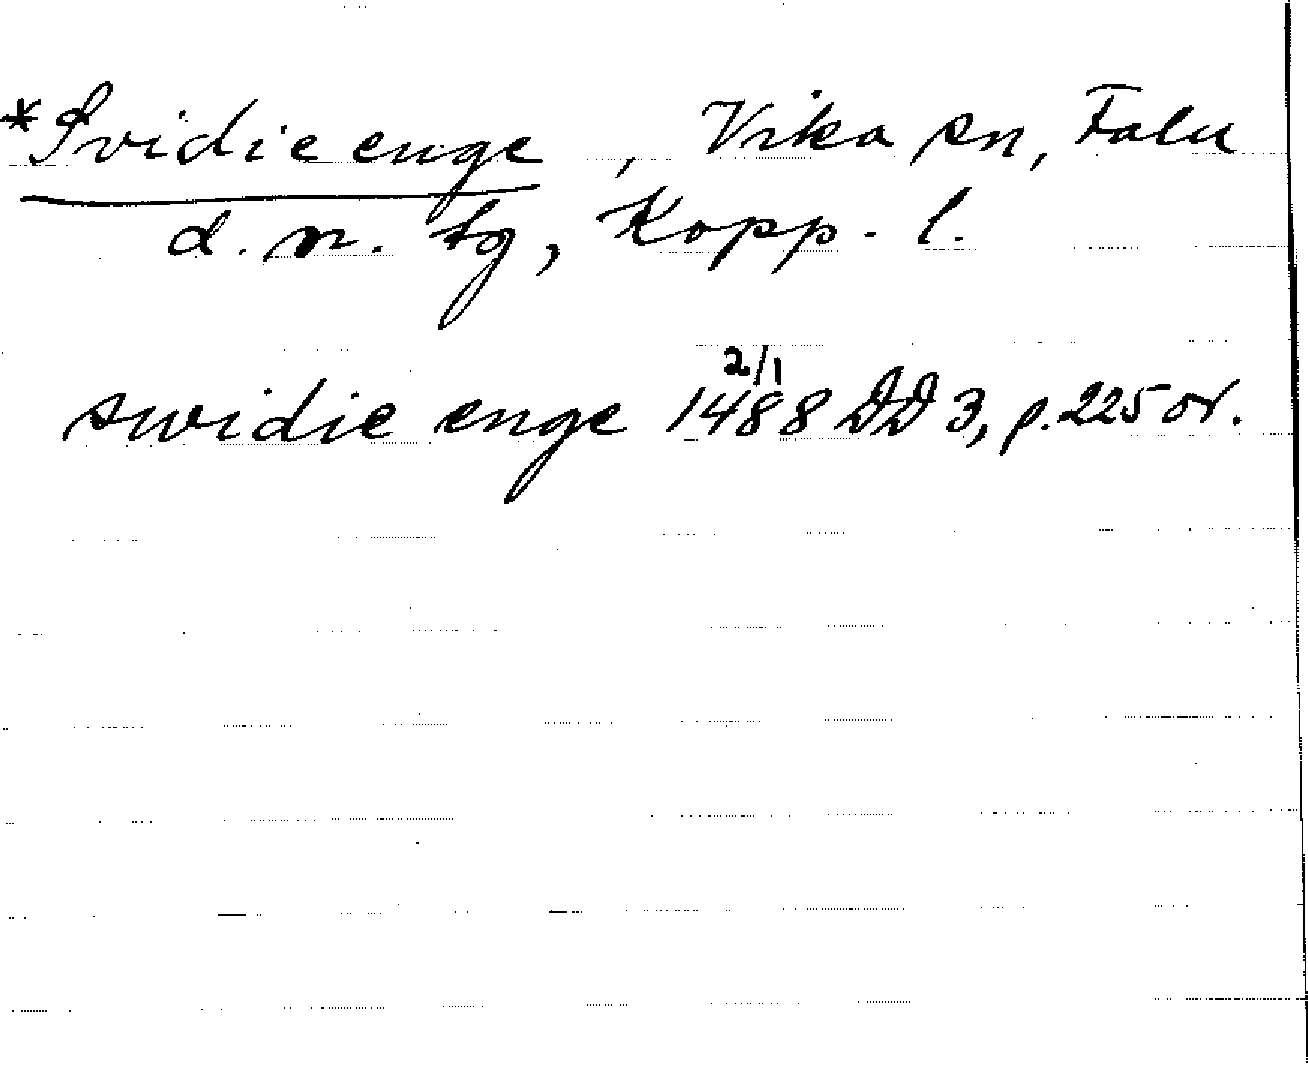 *Svidie enge, Vika sn, Falu
d. n. tg, Kopp. l.
swidie enge 2/1 1488 DD 3, p. 225 or.